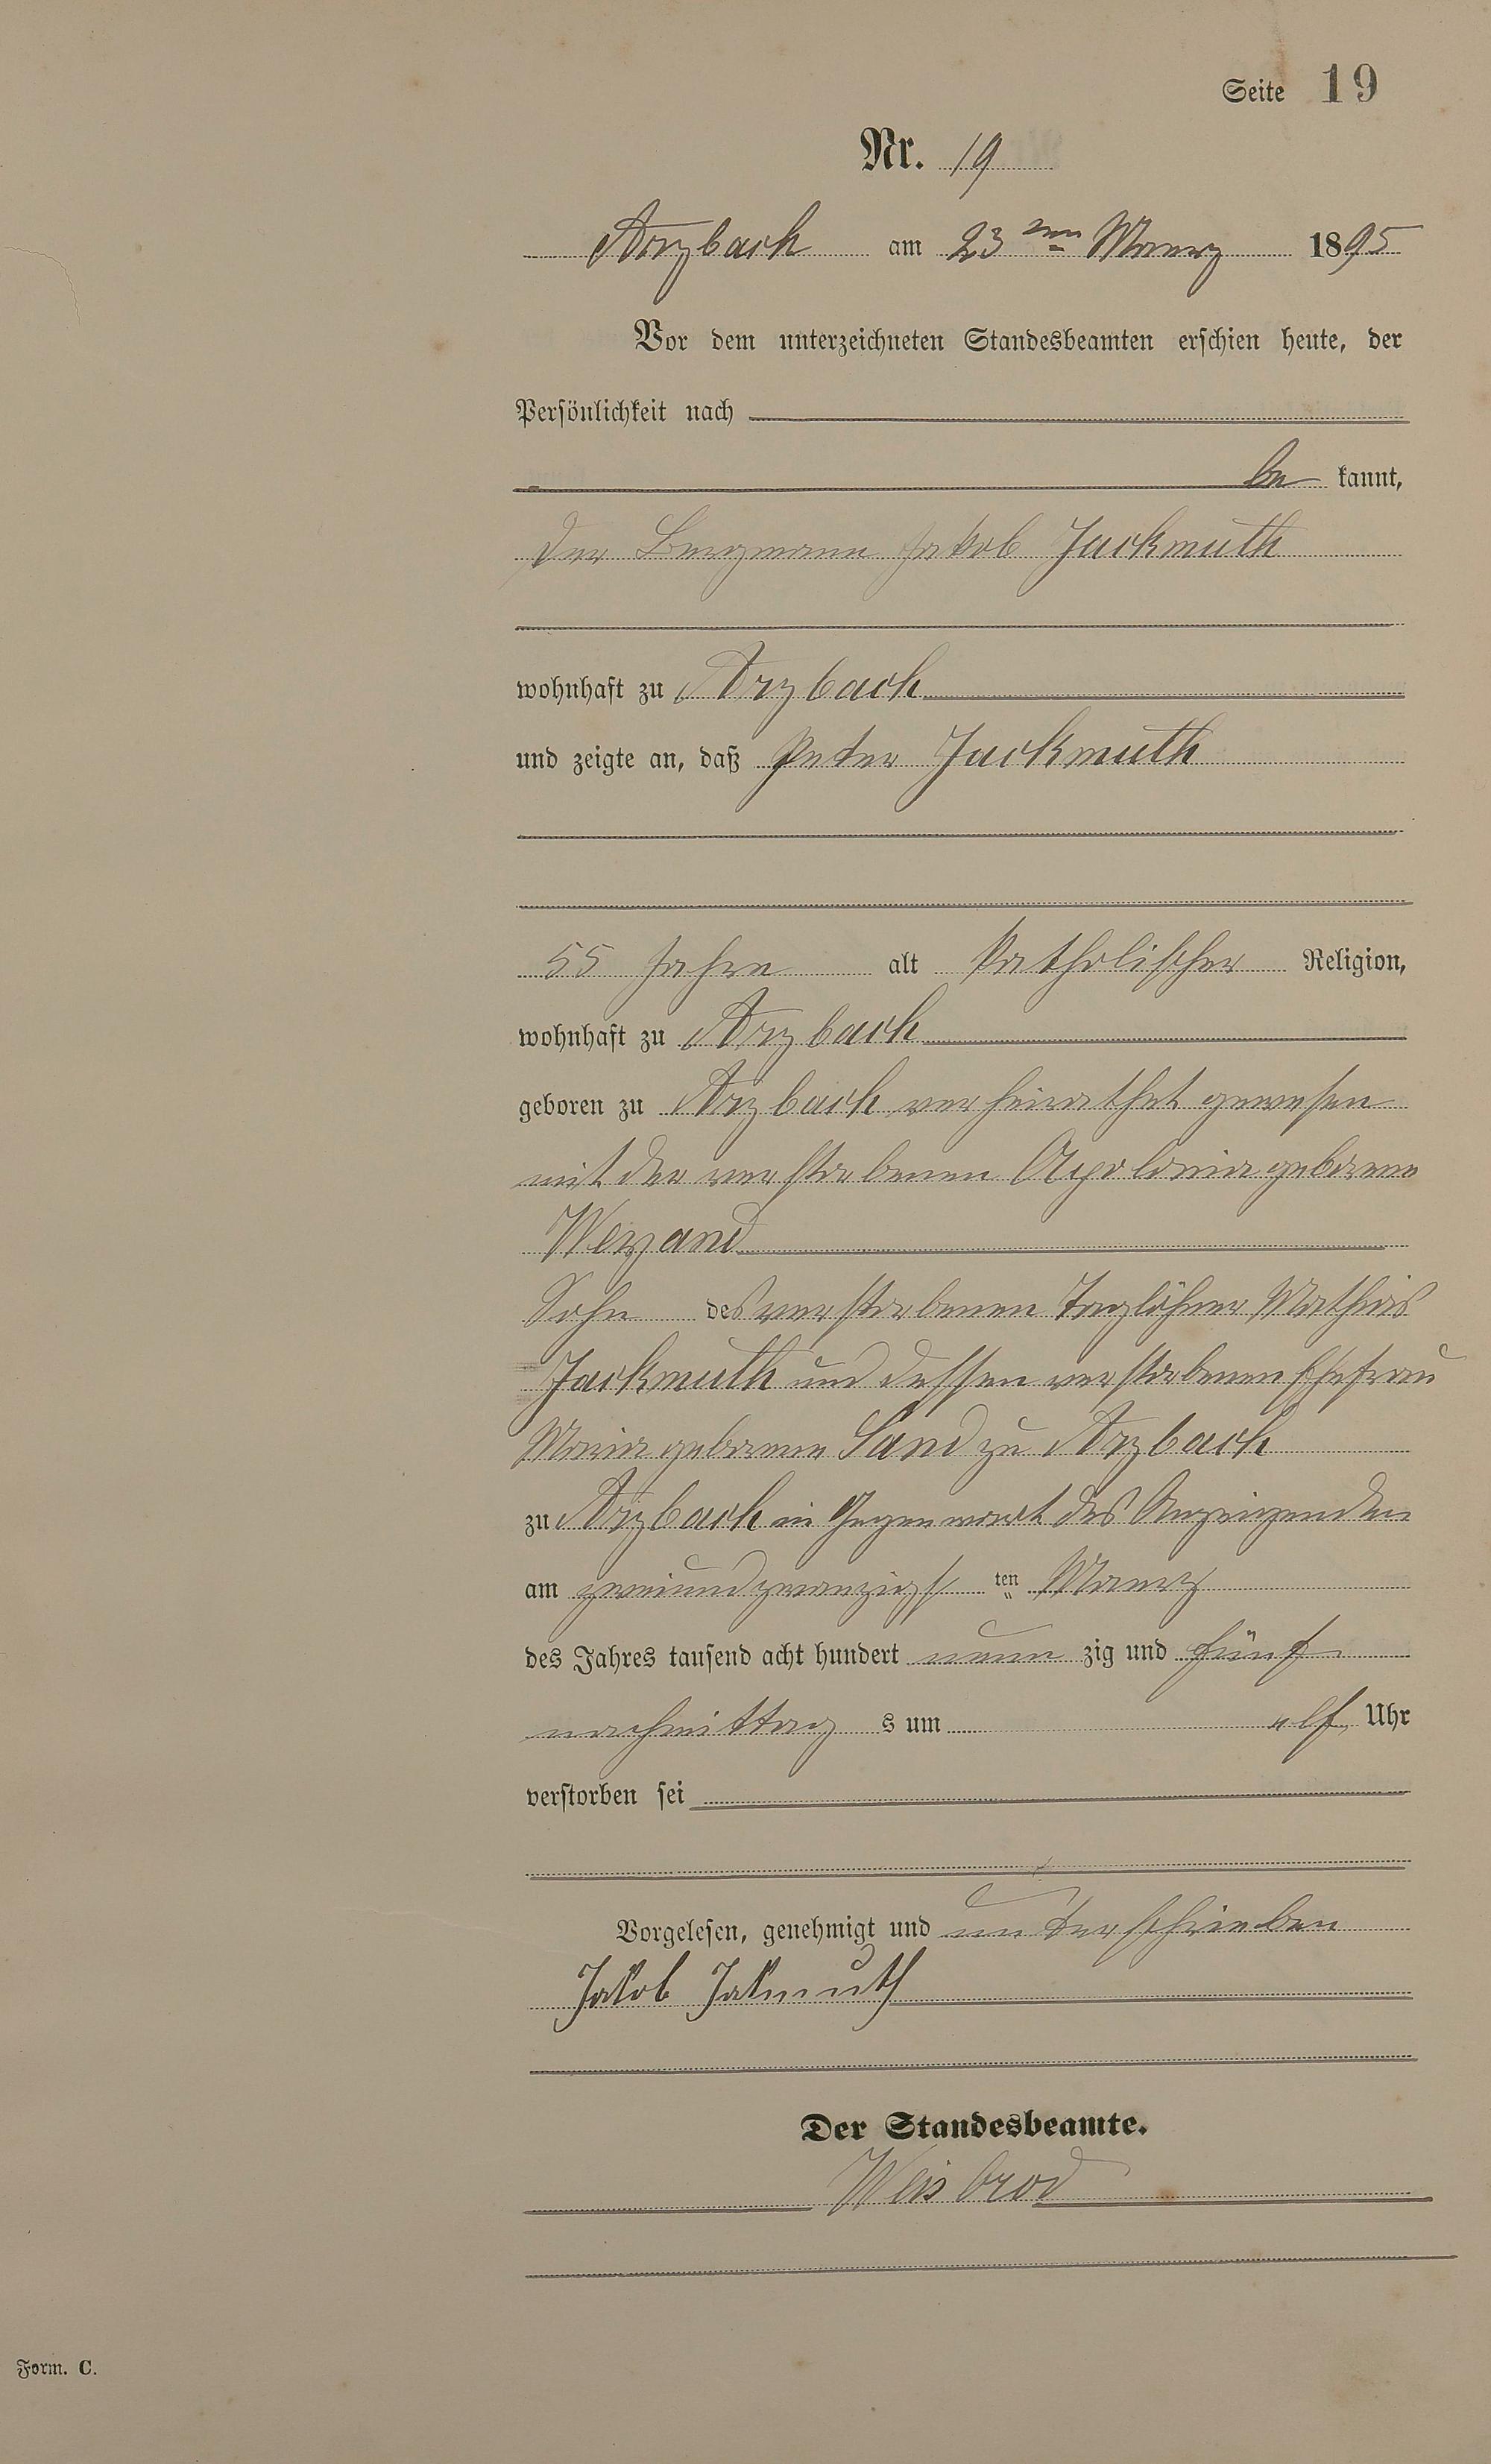 Seite 19
Nr. 19
Arzbach am 23ten Maerz 1895
Vor dem unterzeichneten Standesbeamten erschien heute, der
Persönlichkeit nach
be kannt,
der Bergmann Jakob Jackmuth
wohnhaft zu Arzbach
und zeigte an, daß Peter Jackmuth
55 Jahre alt katholischer Religion,
wohnhaft zu Arzbach
geboren zu Arzbach verheirathet gewesen
mit der verstorbenen Apolonia geborene
Weyand
Sohn des verstorbenen Taglöhner Mathias
Jackmuth und dessen verstorbenen Ehefrau
Maria geborene Sand zu Arzbach
zu Arzbach in Gegenwart des Anzeigenden
am zweiundzwanzigst ten Maerz
des Jahres tausend acht hundert neun zig und fünf
nachmittag s um elf Uhr
verstorben sei
Vorgelesen, genehmigt und unterschrieben
Jakob Jakmuth
Der Standesbeamte.
Weisbrod
Form. C.